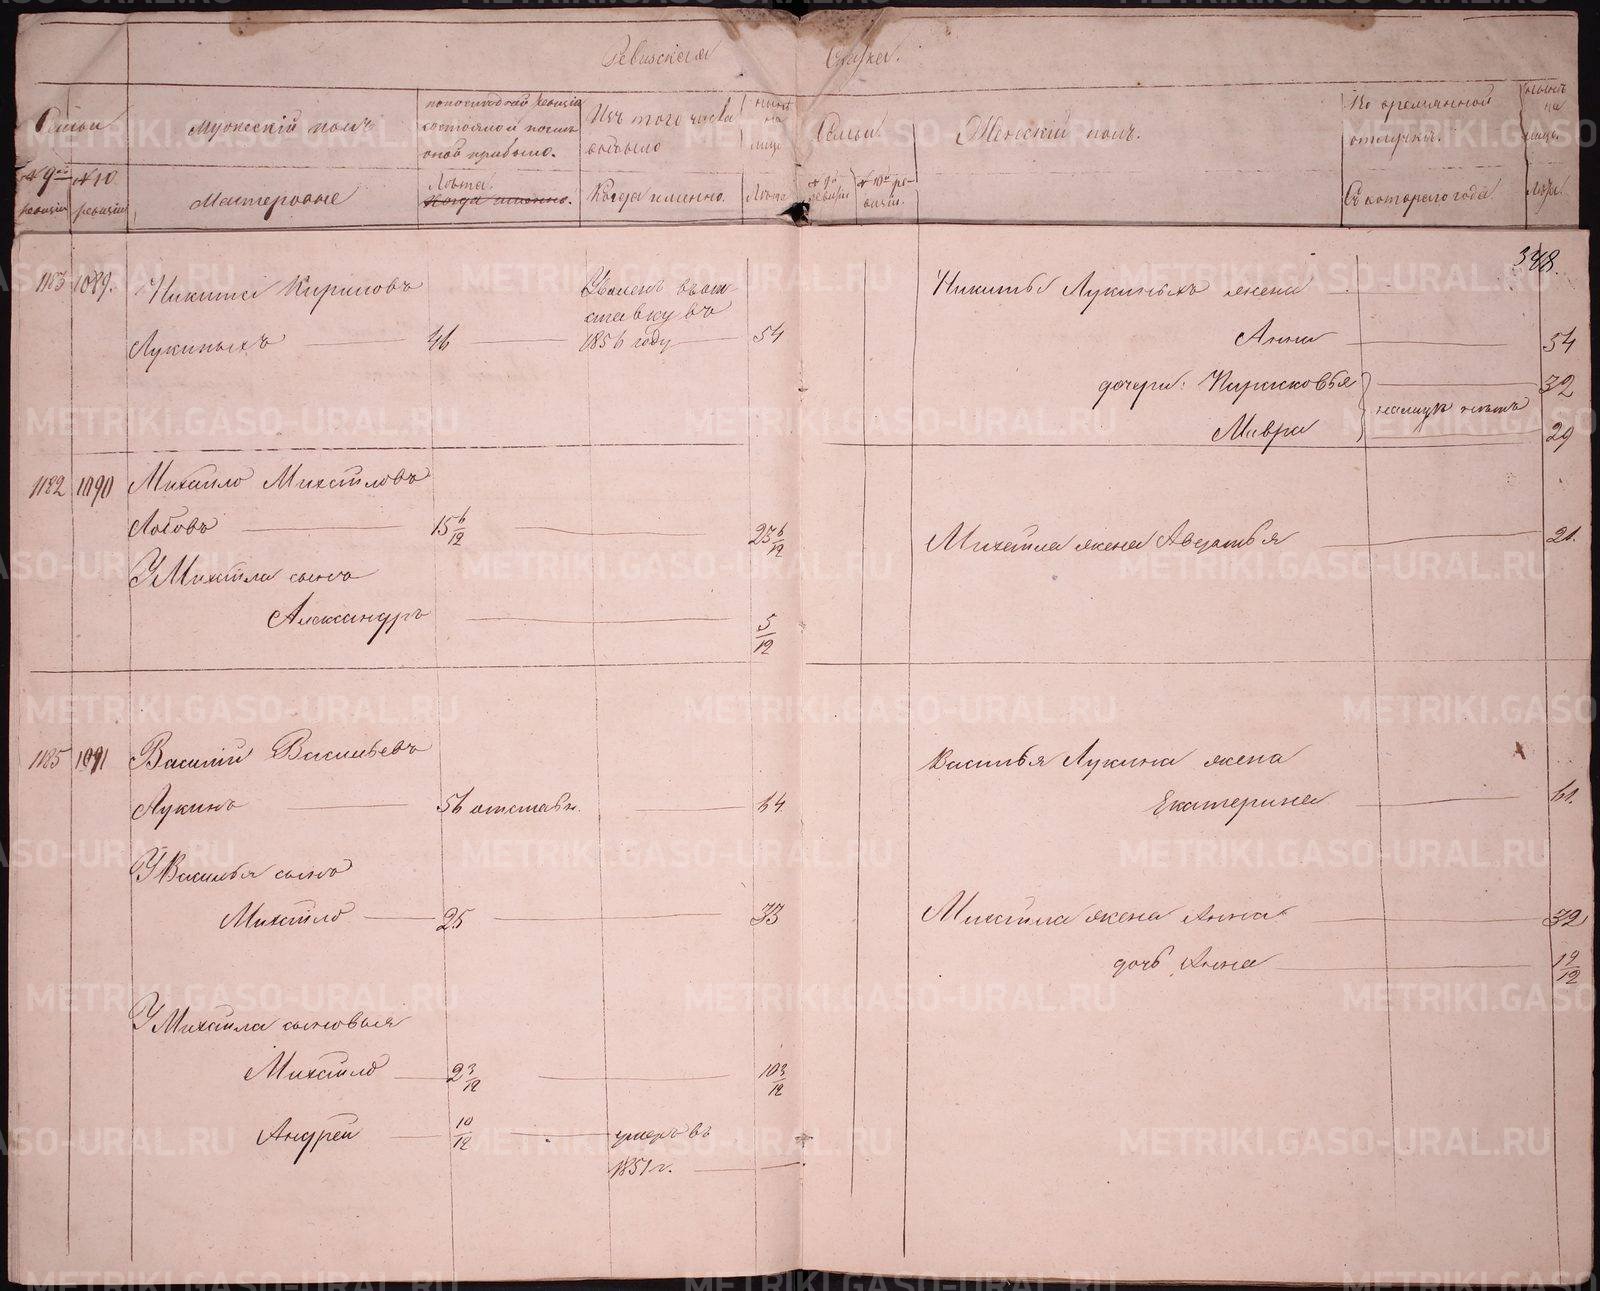 Ревизская Сказка.
Семьи
Мужескій полъ
по последней ревизіи состояло и после оной прибыло.
Изъ того числа выбыло
ныне на лицо
Семьи
Женскій полъ.
Во временной отлучке.
ныне на лицо.
№ 9ой ревизіи
№ 10 ревизіи
Мастеровые
Лѣта.
Когда именно.
Когда именно.
Лѣта
№ 9й ревизіи
№ 10й ревизіи.
Съ котораго года
Лѣта.
348.
1183 1089. Никита Кириловъ
Лукиныхъ 46
Уволенъ въ от
ставку въ
1856 году 54
Никиты Лукиныхъ жена
Анна 54
дочери: Парасковья 32
Мавра 29
налицѣ нѣтъ
1182 1090 Михайло Михайловъ
Лобовъ 15 6/12 23 6/12
У Михайла сынъ
Александръ 5/12
Михайла жена Авдотья 21.
1185 1091 Василій Васильевъ
Лукинъ 56 отставн. 64
У Василья сынъ
Михайло 25 33
У Михайла сыновья
Михайло 2 3/12 10 3/12
Андрей 10/12 умеръ въ
1851 г.
Василья Лукина жена
Екатерина 61.
Михайла жена Анна 32
дочь Анна 19/12
METRIKI.GASO-URAL.RU